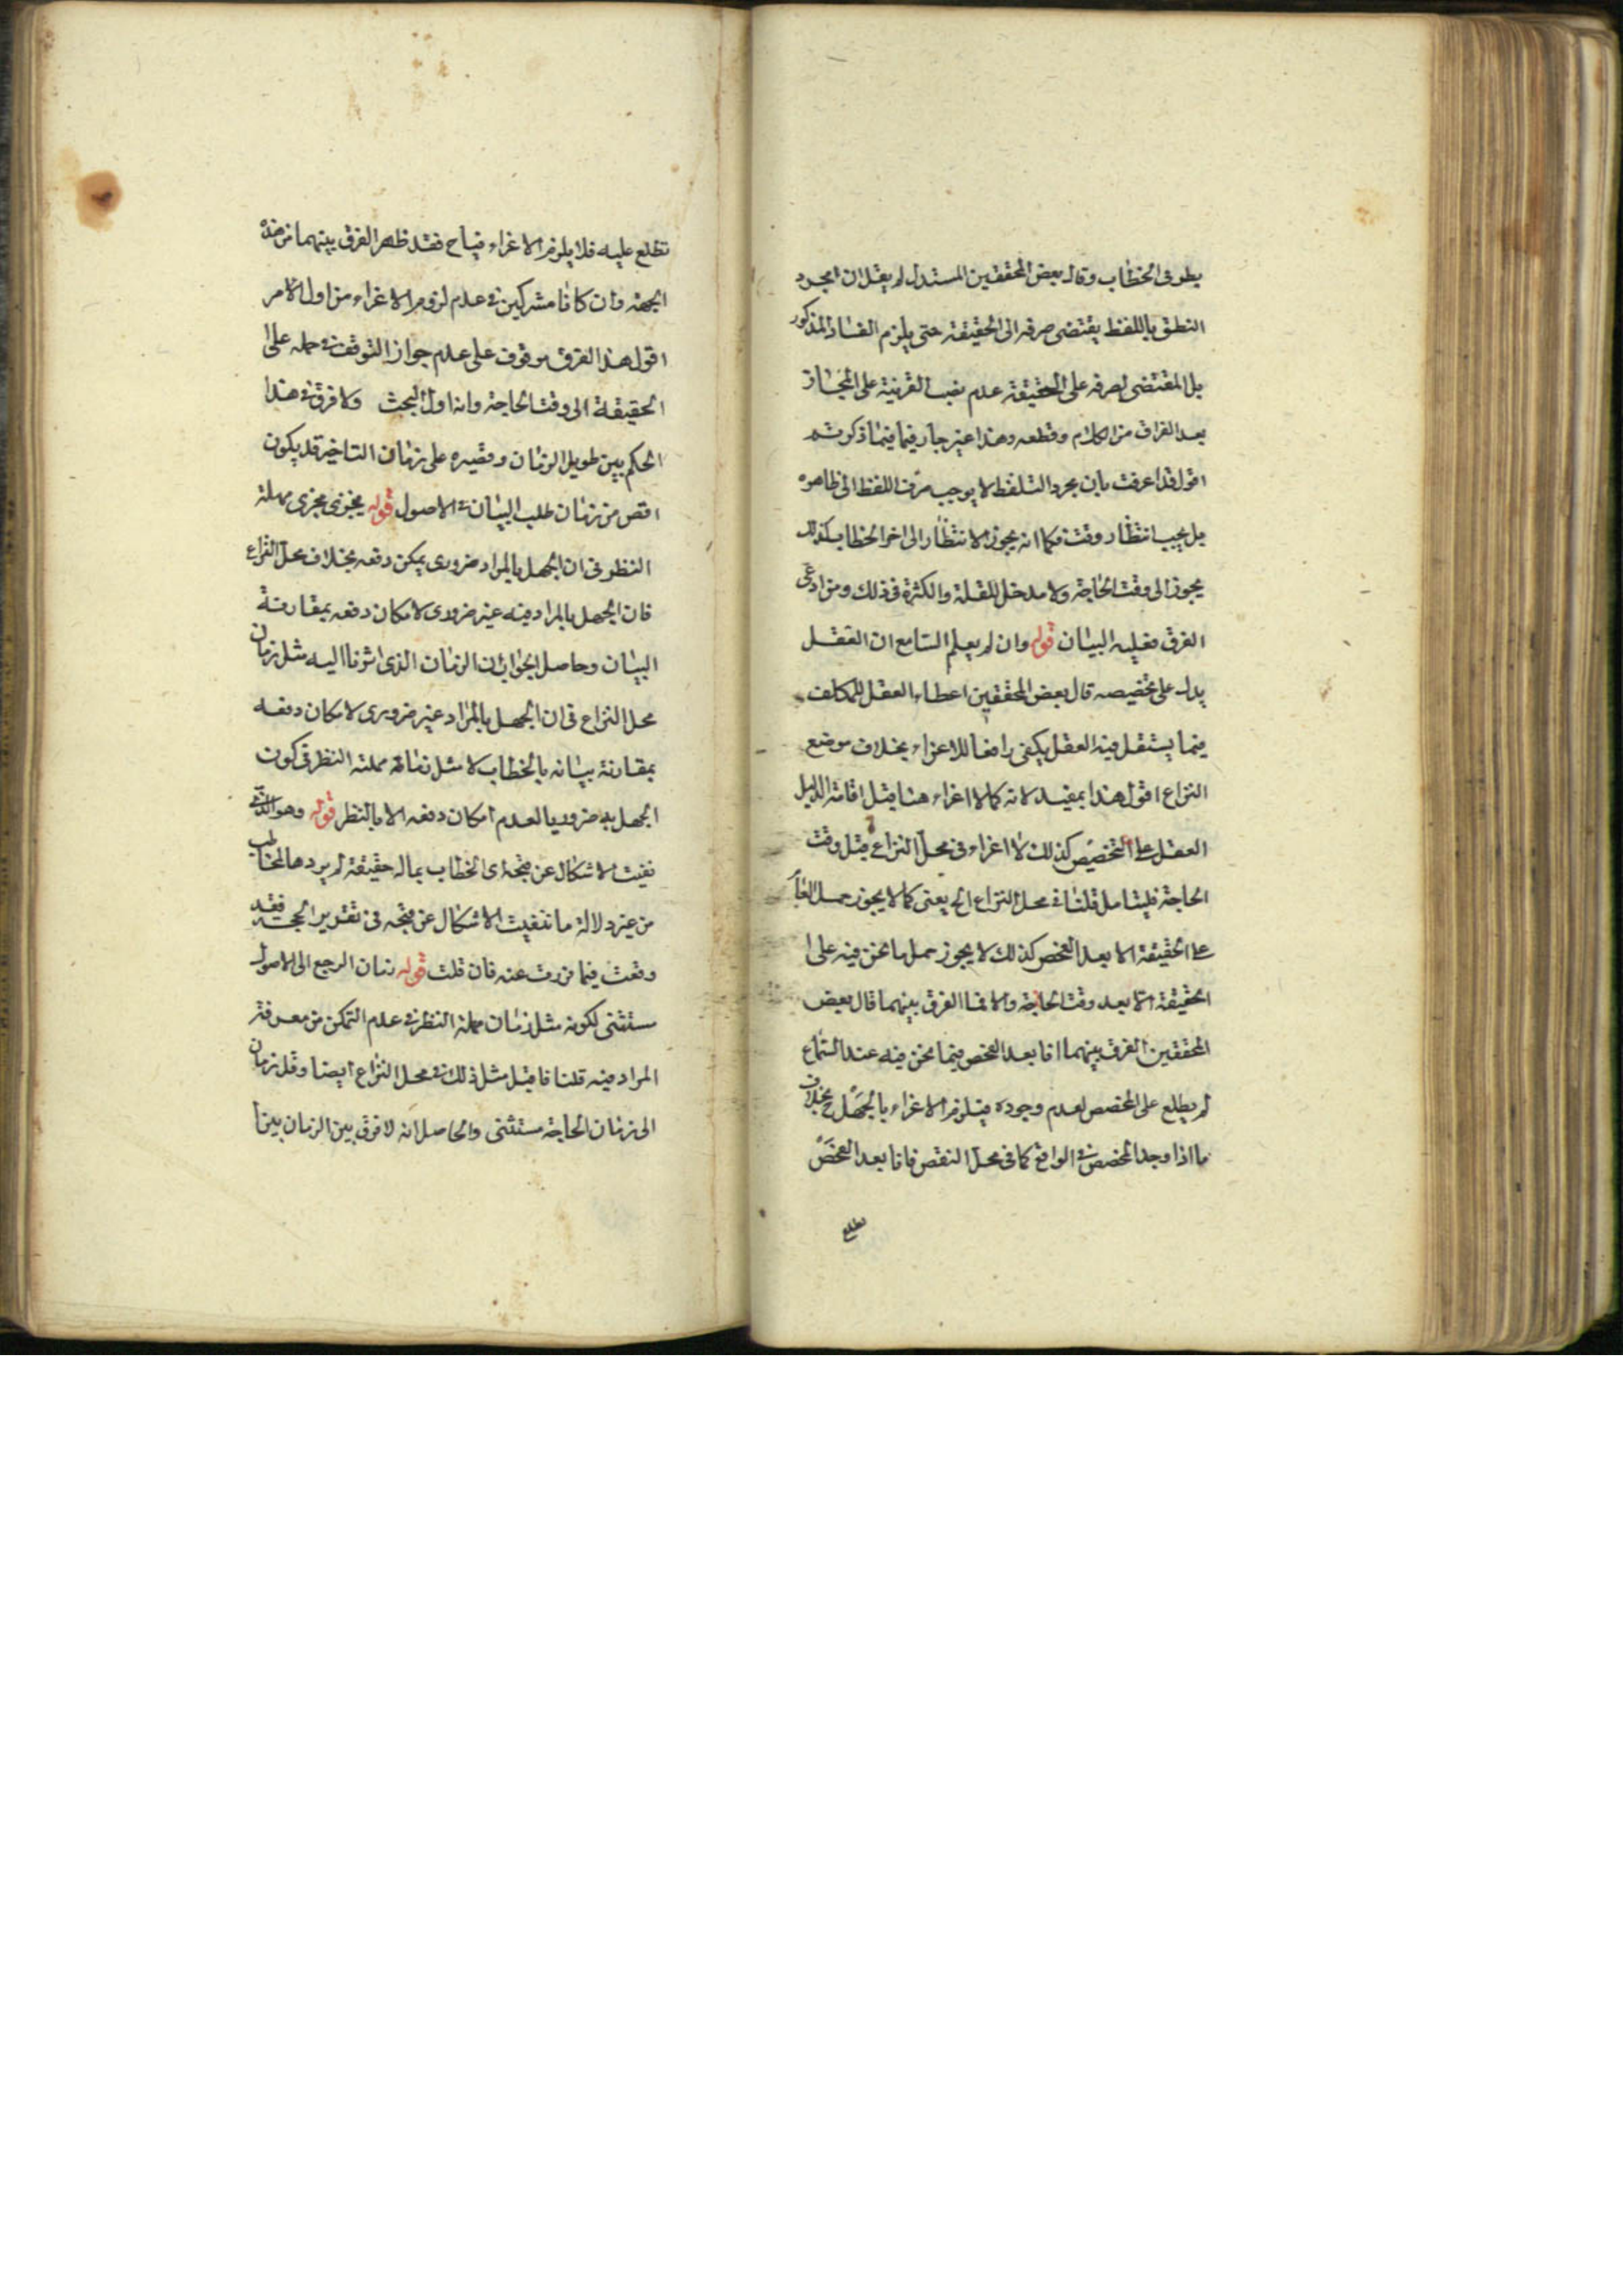 يطو فى الخطاب وقال بعض المحققين المستدل لم يقل ان مجرد
النطق باللفظ يقتضى صرفه الى الحقيقة حتى يلزم الفساد المذكور
بل المقتضى لصرفه على الحقيقة عدم نصب القرينة على المجاز
بعد الفراق من الكلام وقطعه وهذا غير جار فيما فيما ذكرتم
اقول قد اعرفت بان مجرد التلفظ لا يوجب صرف اللفظ الى ظاهره
بل يجب انتظار وقت فكما انه يجوز الانتظار الى اخر الخطاب كذلك
يجوز الى وقت الحاجة ولا مدخل للقلة والكثرة فى ذلك ومن ادعى
الفرق فعليه البيان قوله وان لم يعلم السامع ان العقل
يدل على تخصيصه قال بعض المحققين اعطاء العقل للمكلف
فيما يستقل فيه العقل يكفى رافعا للاغراء بخلاف موضع
النزاع اقول هذا بمفيد لانه كما لا اغراء هنا قبل اقامة الدليل
العقل على التخصيص كذلك لا اغراء فى محل النزاع قبل وقت
الحاجة فليتامل قلنا فى محل النزاع الخ يعنى كما لا يجوز حمل العام
على الحقيقة الا بعد الفحص كذلك لا يجوز حمل ما نحن فيه على ا
الحقيقة الا بعد وقت الحاجة والا فما الفرق بينهما قال بعض
المحققين الفرق بينهما انا بعد الفحص فيما نحن فيه عند السماع
لم يطلع على المخصص لعدم وجوده فيلزم الاغراء بالجهل ح بخلاف
ما اذا وجد المخصص فى الواقع كما فى محل النقض فانا بعد الفحص
نطلع
نطلع عليه فلا يلزم الاغراء فياح فقد ظهر الفرق بينهما من هذه
الجهة وان كانا مشركين فى عدم لزوم الاغراء من اول الامر
اقول هذا الفرق موقوف على عدم جواز التوقف فى حمله على ا
الحقيقة الى وقت الحاجة وانه اول البحث ولا فرق فى هذا
الحكم بين طويل الزمان وقصيره على زمان التاخير قد يكون
اقص من زمان طلب البيان فى الاصول قوله يجزى مجزى مهلة
النظر فى ان الجهل بالمراد ضرورى يمكن دفعه بخلاف محل النزاع
فان الجهل بالمراد فيه غير ضرورى لامكان دفعه بمقارنة
البيان وحاصل الجواب ان الزمان الذى اشرنا اليه مثل زمان
محل النزاع فى ان الجهل بالمراد غير ضرورى لامكان دفعه
بمقارنة بيانه بالخطاب لا مثل زمان مهلة النظر فى كون
الجهل به ضروريا لعدم امكان دفعه الا بالنظر قوله وهو الذى
نفيت الاشكال عن قبحه اى الخطاب بما له حقيقة لم يردها المخاطب
من غير دلالة ما نفيت الاشكال عن قبحه فى تقرير الحجة فقد
وقعت فيما فررت عنه فان قلت قوله زمان الرجع الى الاصول
مستثنى لكونه مثل زمان مهلة النظر فى عدم التمكن من معرفة
المراد فيه قلنا فا قبل مثل ذلك فى محل النزاع ايضا وقل زمان
الى زمان الحاجة مستثنى والحاصل انه لا فرق بين الزمان بين ا